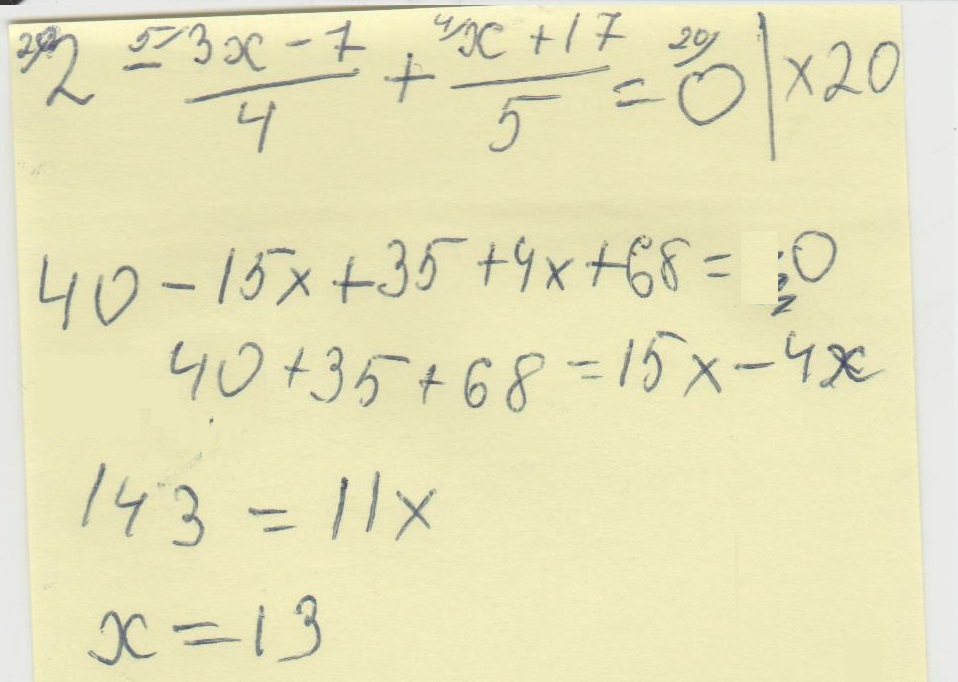 20/2 - 5/(3x-7)/4 + 4/(x+17)/5 = 20/0 | ×20
40-15x+35+4x+68=0
40+35+68=15x-4x
143=11x
x=13